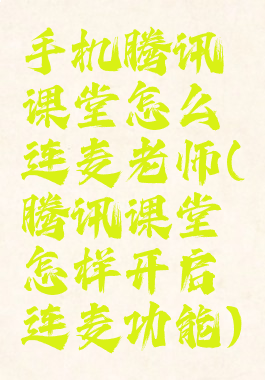 手机腾讯
课堂怎么
连麦老师(
腾讯课堂
怎样开启
连麦功能)